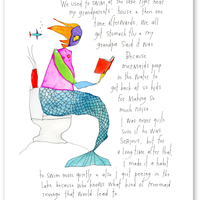 We used to swim at the lake right near
my grandparents' house & then one
time afterwards, we all
got stomach flu & my
grandpa said it was
Because
mermaids poop
in the water to
get back at us kids
for making so
much noise.
I was never quite
sure if he was
serious, but for
a long time after that
I made it a habit
to swim more quietly & also I quit peeing in the
lake because who knows what kind of mermaid
revenge that would lead to.